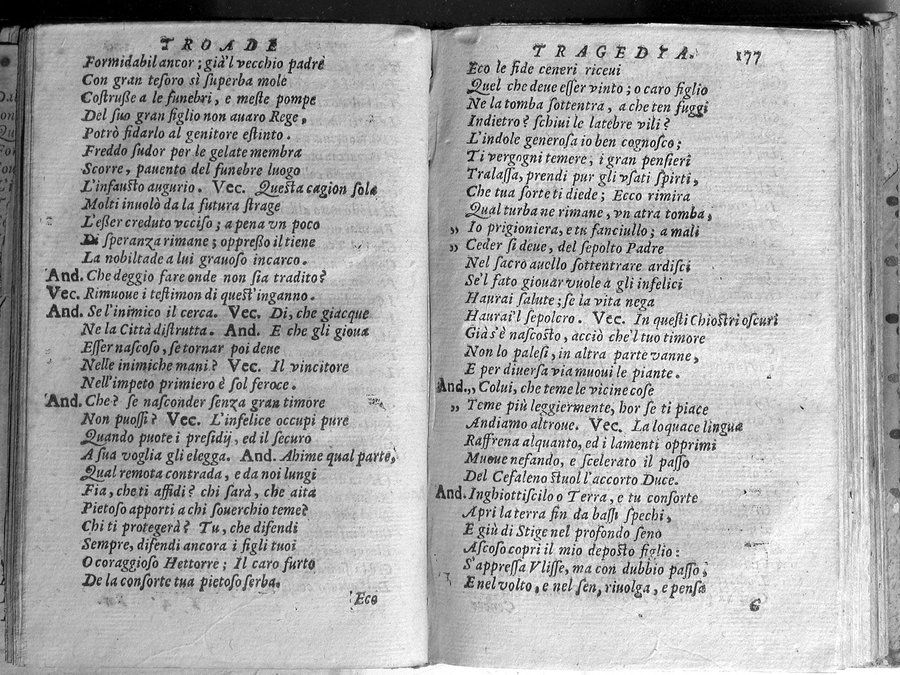 TROADE
Formidabil ancor; già'l vecchio padre
Con gran tesoro sì superba mole
Costruße a le funebri, e meste pompe
Del suo gran figlio non auaro Rege,
Potrò fidarlo al genitore estinto.
Freddo sudor per le gelate membra
Scorre, pauento del funebre luogo
L'infausto augurio. Vec. Questa cagion sola
Molti inuolò da la futura strage
L'eßer creduto vcciso; a pena vn poco
Di speranza rimane; oppreßo il tiene
La nobiltade a lui grauoso incarco.
And. Che deggio fare onde non sia tradito?
Vec. Rimuoue i testimon di quest'inganno.
And. Se l'inimico il cerca. Vec. Di, che giacque
Ne la Città distrutta. And. E che gli gioua
Esser nascoso, se tornar poi deue
Nelle inimiche mani? Vec. Il vincitore
Nell'impeto primiero è sol feroce.
And. Che? se nasconder senza gran timore
Non puossi? Vec. L'infelice occupi pure
Quando puote i presidij, ed il securo
A sua voglia gli elegga. And. Ahime qual parte,
Qual remota contrada, e da noi lungi
Fia, che ti affidi? chi sarà, che aita
Pietoso apporti a chi souerchio teme?
Chi ti protegerà? Tu, che difendi
Sempre, difendi ancora i figli tuoi
O coraggioso Hettorre; Il caro furto
De la consorte tua pietoso serba.
Eco
TRAGEDIA. 177
Eco le fide ceneri riceui
Quel che deue esser vinto; o caro figlio
Ne la tomba sottentra, a che ten fuggi
Indietro? schiui le latebre vili?
L'indole generosa io ben cognosco;
Ti vergogni temere, i gran pensieri
Tralassa, prendi pur gli vsati spirti,
Che tua sorte ti diede; Ecco rimira
Qual turba ne rimane, vn atra tomba,
,, Io prigioniera, e tu fanciullo; a mali
,, Ceder si deue, del sepolto Padre
Nel sacro auello sottentrare ardisci
Se'l fato giouar vuole a gli infelici
Haurai salute; se la vita nega
Haurai'l sepolcro. Vec. In questi Chiostri oscuri
Già s'è nascosto, acciò che'l tuo timore
Non lo palesi, in altra parte vanne,
E per diuersa via muoui le piante.
And. ,, Colui, che teme le vicine cose
,, Teme più leggiermente, hor se ti piace
Andiamo altroue. Vec. La loquace lingua
Raffrena alquanto, ed i lamenti opprimi
Muoue nefando, e scelerato il passo
Del Cefaleno stuol l'accorto Duce.
And. Inghiottiscilo o Terra, e tu consorte
Apri la terra fin da bassi spechi,
E giù di Stige nel profondo seno
Ascoso copri il mio deposto figlio:
S'appressa Vlisse, ma con dubbio passo,
E nel volto, e nel sen, riuolga, e pensa
G